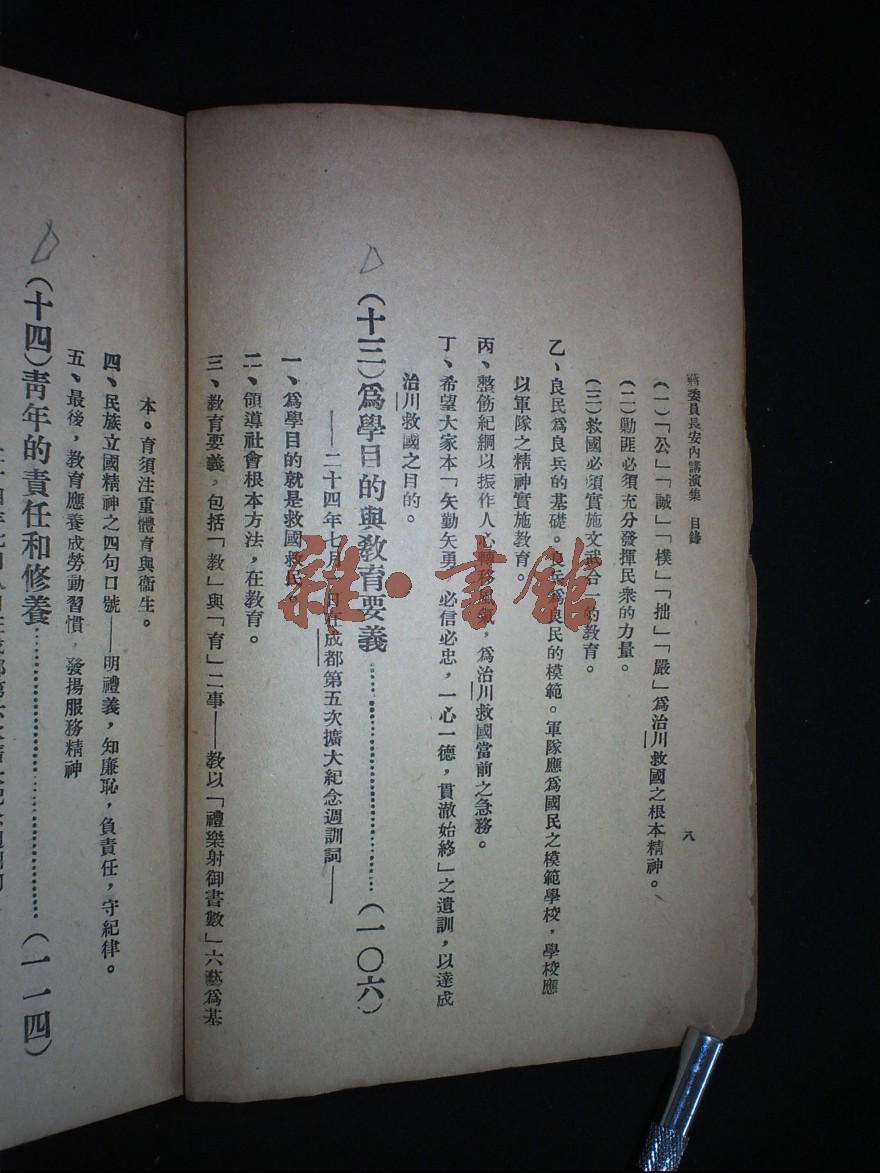 蔣委員長安內講演集 目錄
八
(一)「公」「誠」「樸」「拙」「嚴」爲治川救國之根本精神。
(二)勦匪必須充分發揮民衆的力量。
(三)救國必須實施文武合一的教育。
乙、良民爲良兵的基礎。良兵爲良民的模範。軍隊應爲國民之模範學校，學校應
以軍隊之精神實施教育。
丙、整飭紀綱以振作人心轉移風氣，爲治川救國當前之急務。
丁、希望大家本「矢勤矢勇，必信必忠，一心一德，貫澈始終」之遺訓，以達成
治川救國之目的。
(十三)爲學目的與教育要義…………(一〇六)
——二十四年七月 日在成都第五次擴大紀念週訓詞——
一、爲學目的就是救國救民。
二、領導社會根本方法，在教育。
三、教育要義，包括「教」與「育」二事——教以「禮樂射御書數」六藝爲基
本。育須注重體育與衞生。
四、民族立國精神之四句口號——明禮義，知廉恥，負責任，守紀律。
五、最後，教育應養成勞動習慣，發揚服務精神
(十四)青年的責任和修養…………(一一四)
雜·書館